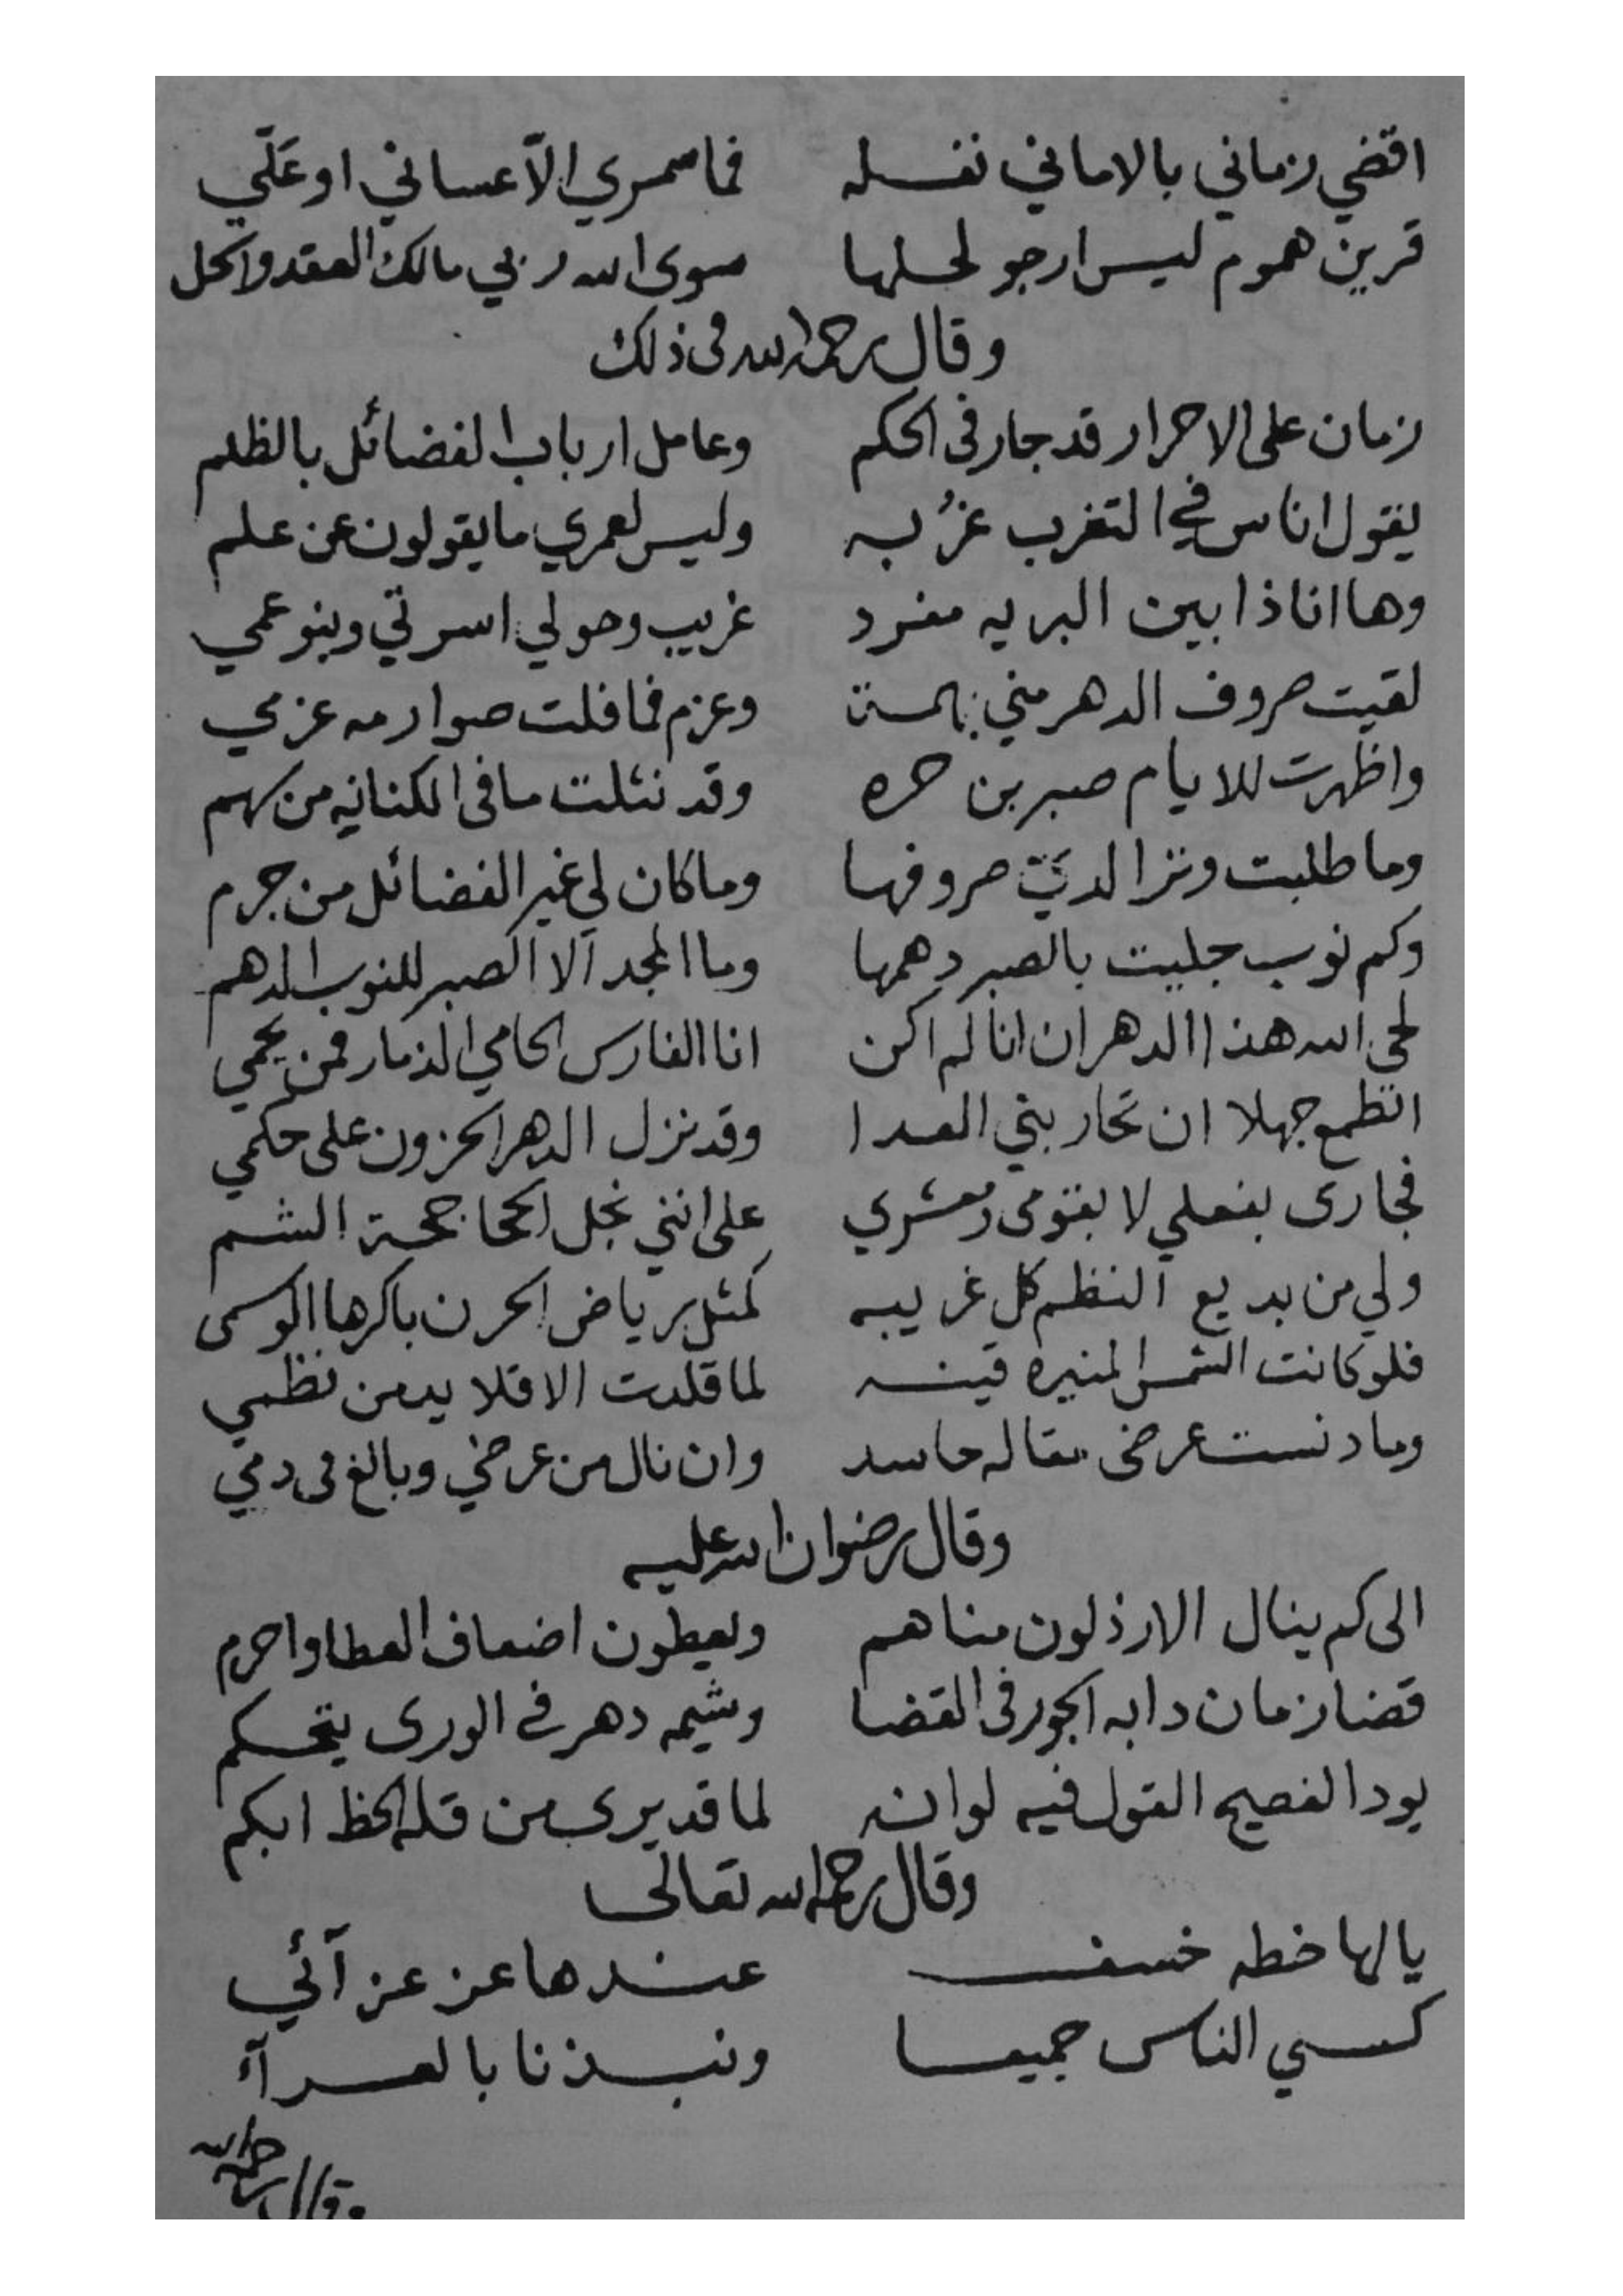 اقضي زماني بالاماني نفسله فما سمري الّا عساني او عَلّي
قرين هموم ليس ارجو لحلها سوى الله ربي مالك العقد والحل
وقال رحمه الله فى ذلك
زمان على الاحرار قد جار فى الحكم وعامل ارباب الفضائل بالظلم
يقول اناس في التغرب عزُبه وليس لعمري ما يقولون عن علم
وها انا ذا بين البريه مفرد غريب وحولي اسرتي وبنو عمي
لقيت صروف الدهر مني وعزم فما فلت صوارمه عزمي
واظهرت للايام صبر بن حره وقد نثلت ما فى الكنانيه من سهم
وما طلبت وترا لديّ صروفها وما كان لي غير الفضائل من جرم
وكم نوب جليت بالصبر دهمها وما المجد الا الصبر للنوب الدهم
لحى الله هذا الدهر ان انا لم اكن انا الفارس الحامي الذمار فمن يحمي
اتطمع جهلا ان تحاربني العدا وقد نزل الدهر الحزون على حكمي
فجارى بفعلي لا بقومى ومعشري على انني نجل الجحاجحة الشم
ولي من بديع النظم كل غريبه كمثل رياض الحزن باكرها الوسمى
فلو كانت الشمس المنيره قينه لما قلدت الا قلايد من نظمي
وما دنست عرضى مقاله حاسد وان نال من عرضي وبالغ فى دمي
وقال رضوان الله عليه
الى كم ينال الارذلون مناهم ويعطون اضعاف العطا واحرم
قضا زمان دابه الجور فى القضا وشيمه دهر في الورى يتحكم
يود الفصيح القول فيه لو انه لما قد يرى من قله الحظ ابكم
وقال رحمه الله تعالى
يالها خطه خسف عندها عز عزآئي
كسي الناس جميعا ونبذنا بالعرآء
وقال رحمه الله